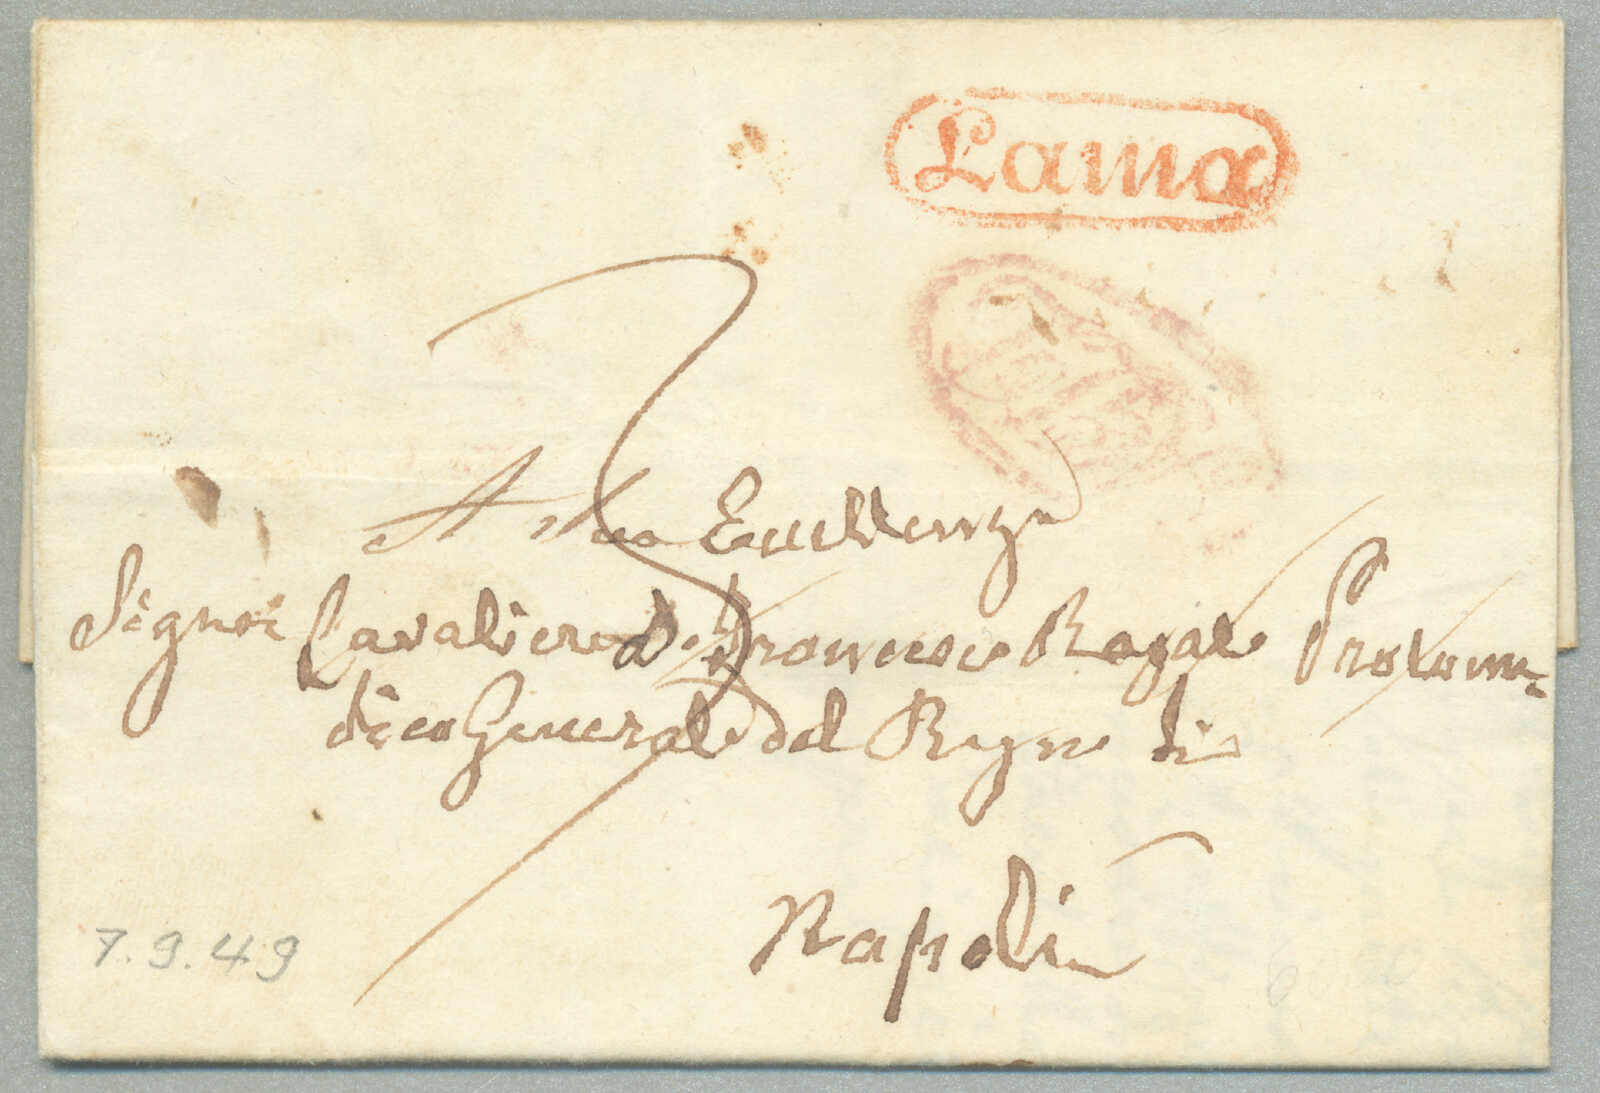 Lama
A Sua Eccellenza
Signor Cavaliere D. Francesco Protome-
dico Generale del Regno di
Napoli
7.9.49